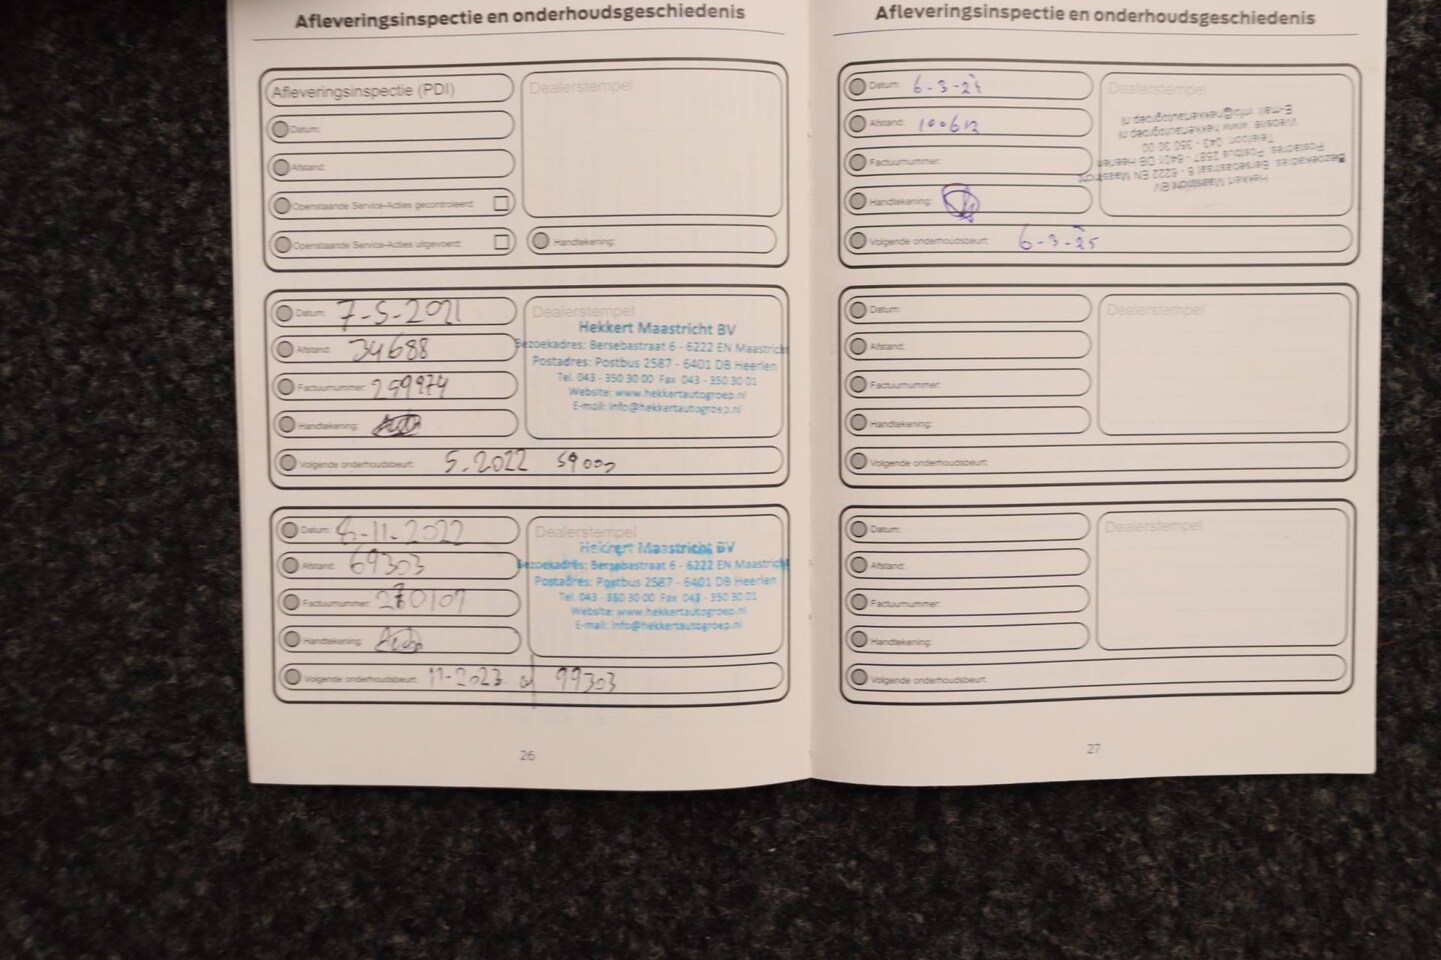 Afleveringsinspectie en onderhoudsgeschiedenis
Afleveringsinspectie (PDI)
Datum:
Afstand:
Openstaande Service-Acties gecontroleerd:
Openstaande Service-Acties uitgevoerd:
Dealerstempel
Handtekening:
Datum: 7-5-2021
Afstand: 34688
Factuurnummer: 259974
Handtekening:
Dealerstempel
Hekkert Maastricht BV
Bezoekadres: Bersebastraat 6 - 6222 EN Maastricht
Postadres: Postbus 2587 - 6401 DB Heerlen
Tel. 043 - 350 30 00 Fax 043 - 350 30 01
Website: www.hekkertautogroep.nl
E-mail: info@hekkertautogroep.nl
Volgende onderhoudsbeurt: 5.2022 59000
Datum: 8-11-2022
Afstand: 69303
Factuurnummer: 270107
Handtekening:
Dealerstempel
Hekkert Maastricht BV
Bezoekadres: Bersebastraat 6 - 6222 EN Maastricht
Postadres: Postbus 2587 - 6401 DB Heerlen
Tel. 043 - 350 30 00 Fax 043 - 350 30 01
Website: www.hekkertautogroep.nl
E-mail: info@hekkertautogroep.nl
Volgende onderhoudsbeurt: 11-2023 of 99303
26
Afleveringsinspectie en onderhoudsgeschiedenis
Datum: 6-3-24
Afstand:
Factuurnummer:
Handtekening:
Dealerstempel
Hekkert Maastricht BV
Bezoekadres: Bersebastraat 6 - 6222 EN Maastricht
Postadres: Postbus 2587 - 6401 DB Heerlen
Telefoon: 043 - 350 30 00
Website: www.hekkertautogroep.nl
E-mail: info@hekkertautogroep.nl
Volgende onderhoudsbeurt: 6-3-25
Datum:
Afstand:
Factuurnummer:
Handtekening:
Dealerstempel
Volgende onderhoudsbeurt:
Datum:
Afstand:
Factuurnummer:
Handtekening:
Dealerstempel
Volgende onderhoudsbeurt:
27